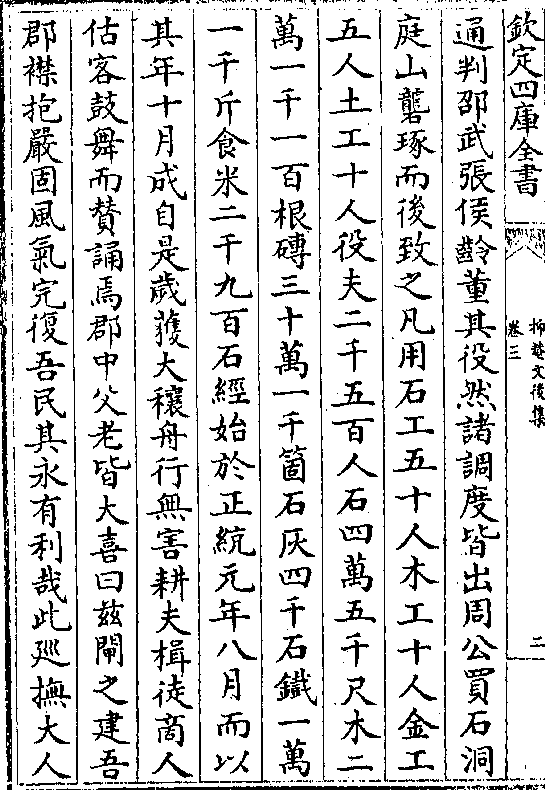 欽定四庫全書
抑菴文後集
卷三
二
通判邵武張侯齡董其役然諸調度皆出周公買石洞
庭山礱琢而後致之凡用石工五十人木工十人金工
五人土工十人役夫二千五百人石四萬五千尺木二
萬一千一百根磚三十萬一千箇石灰四千石鐵一萬
一千斤食米二千九百石經始於正統元年八月而以
其年十月成自是歲獲大穰舟行無害耕夫楫徒商人
估客鼓舞而贊誦焉郡中父老皆大喜曰茲閘之建吾
郡襟抱嚴固風氣完復吾民其永有利哉此廵撫大人